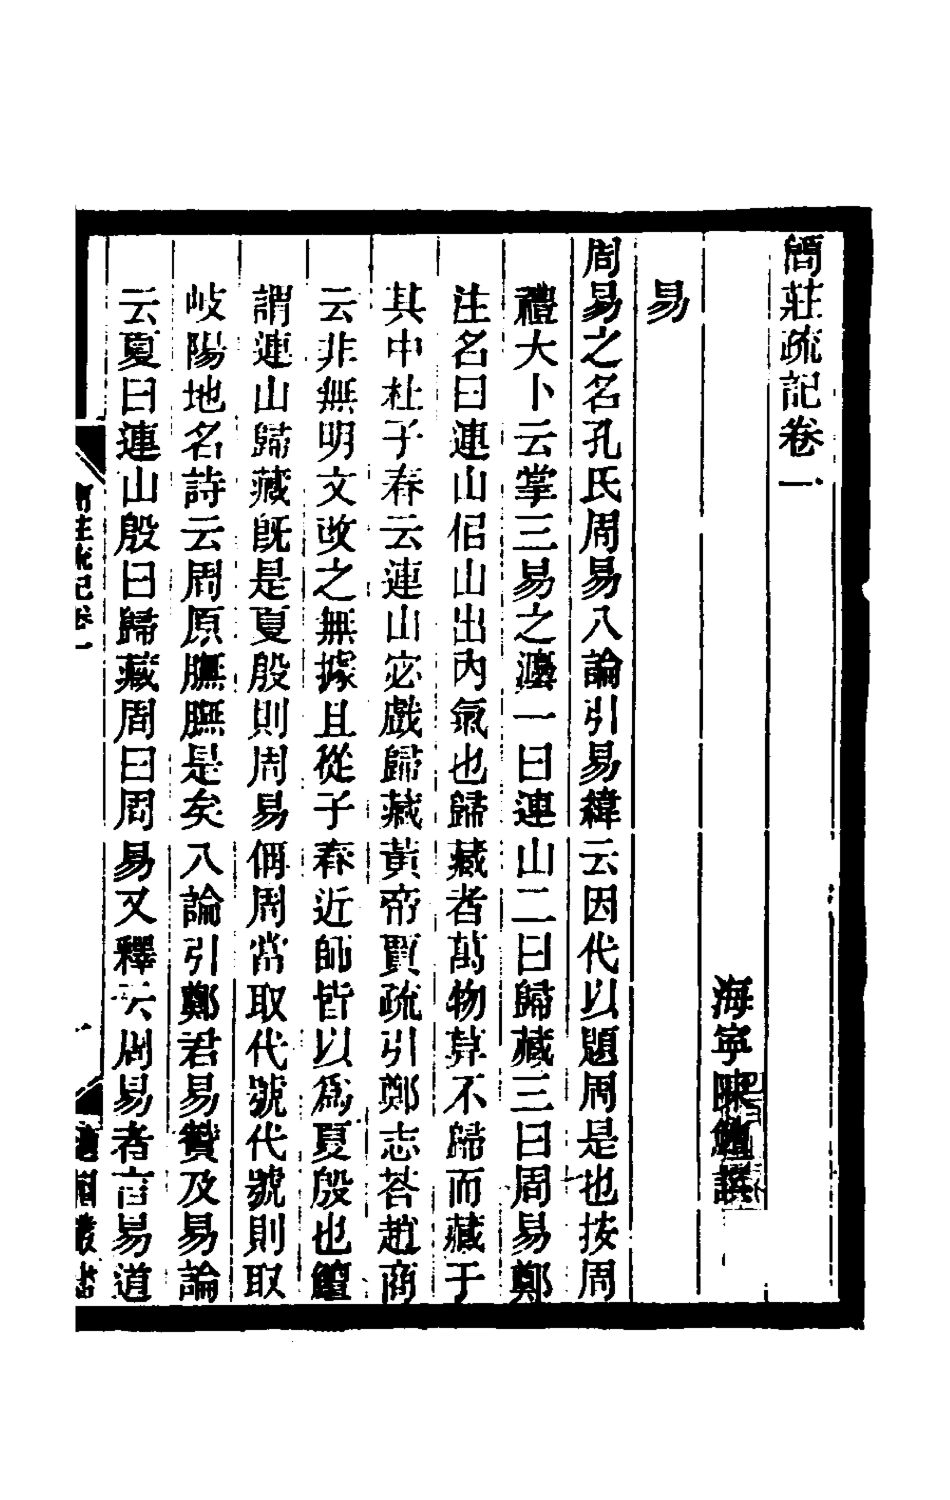 簡莊疏記卷一
海寧陳鱣撰
易
周易之名孔氏周易八論引易緯云因代以題周是也按周
禮大卜云掌三易之灋一曰連山二曰歸藏三曰周易鄭
注名曰連山佀山出內氣也歸藏者萬物莫不歸而藏于
其中杜子春云連山宓戲歸藏黃帝賈疏引鄭志荅趙商
云非無明文改之無據且從子春近師皆以爲夏殷也鱣
謂連山歸藏旣是夏殷則周易偁周當取代號代號則取
岐陽地名詩云周原膴膴是矣八論引鄭君易贊及易論
云夏曰連山殷曰歸藏周曰周易又釋云周易者言易道
簡莊疏記卷一
一
適園叢書